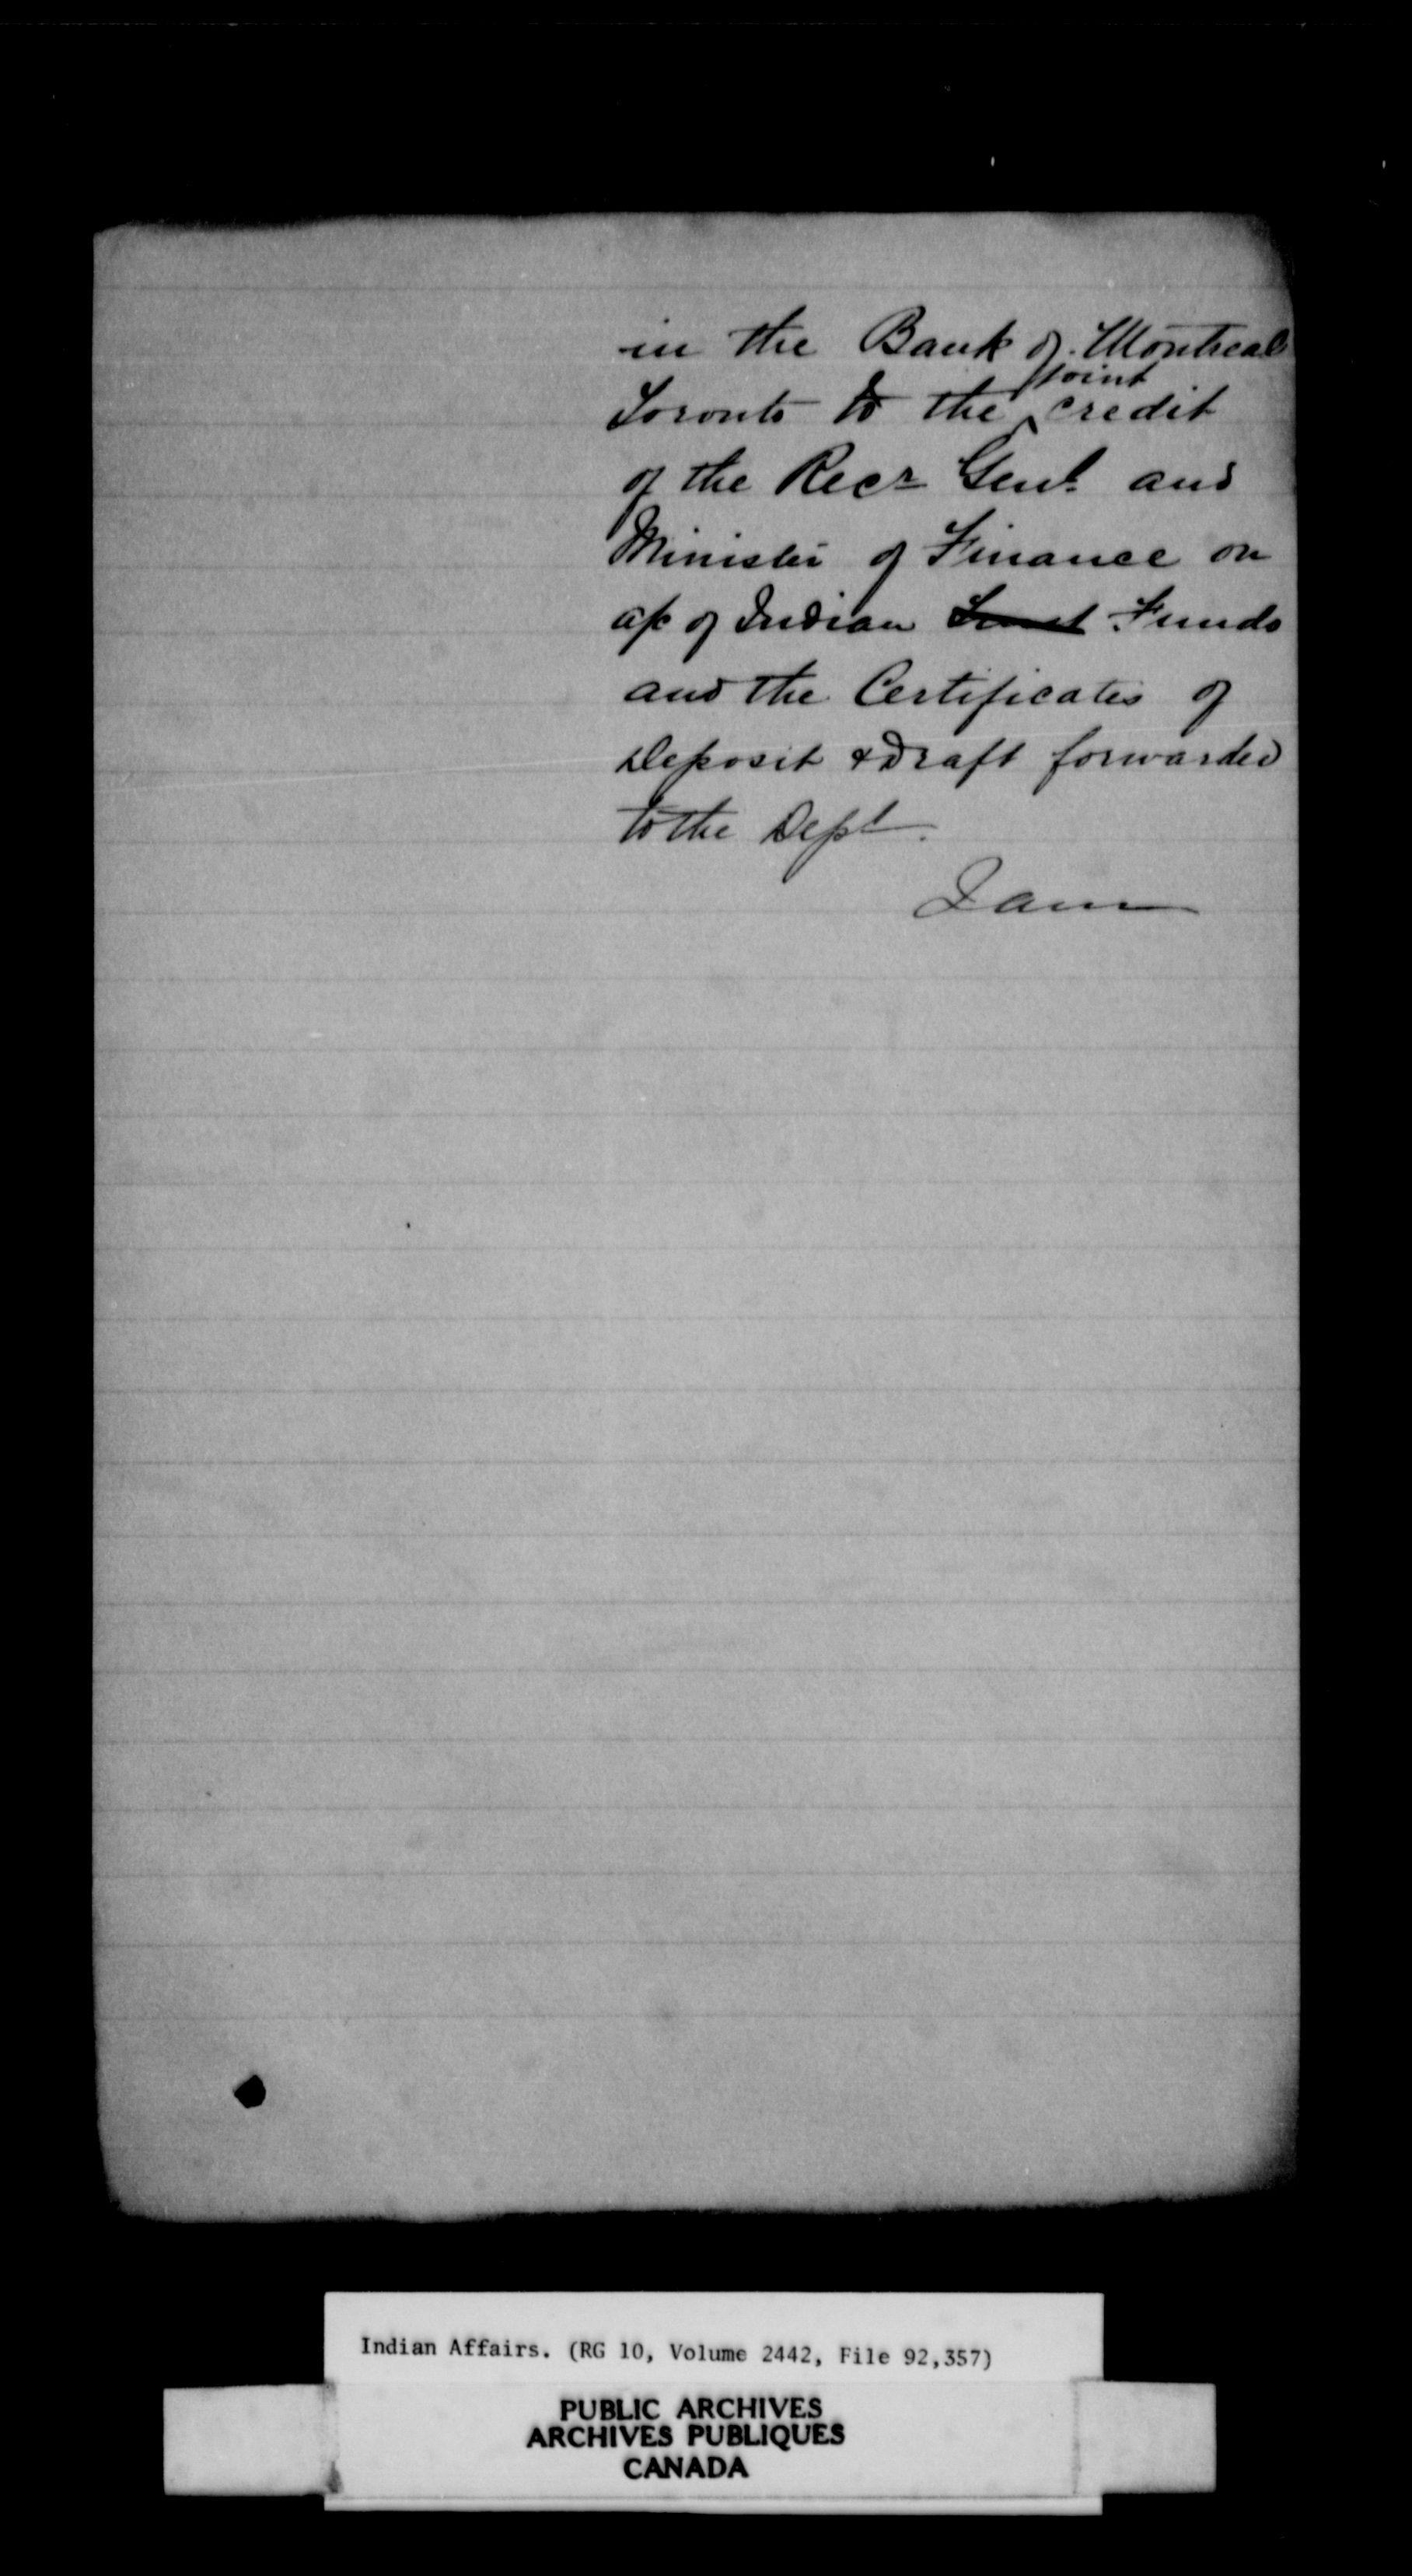 in the Bank of Montreal
Toronto to the joint credit
of the Recr Genl. and
Minister of Finance on
a/c of Indian Funds
and the Certificates of
Deposit & Draft forwarded
to the Dept.
I am
Indian Affairs. (RG 10, Volume 2442, File 92,357)
PUBLIC ARCHIVES
ARCHIVES PUBLIQUES
CANADA